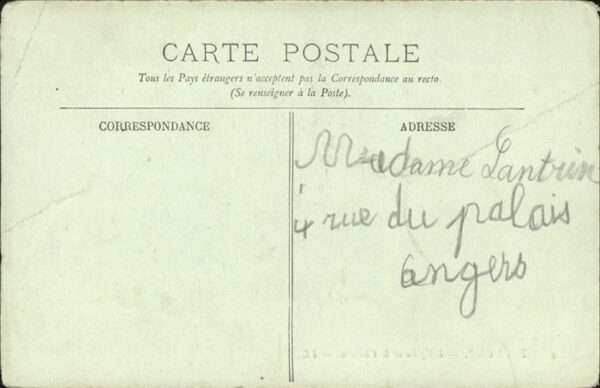 CARTE POSTALE
Tous les Pays étrangers n'acceptent pas la Correspondance au recto.
(Se renseigner à la Poste).
CORRESPONDANCE
ADRESSE
Madame Lantrin
4 rue du palais
angers